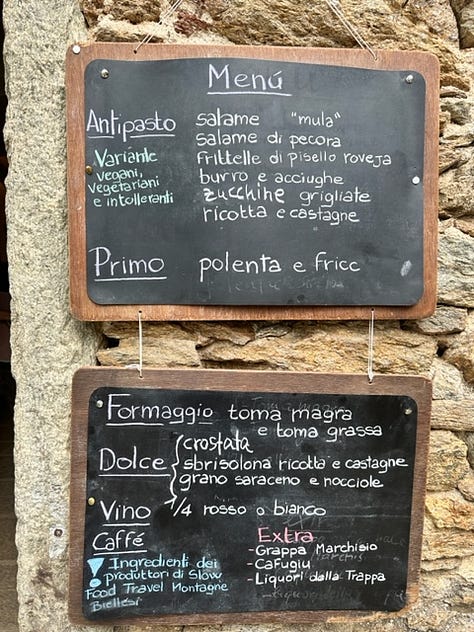 Menú
Antipasto
salame "mula"
salame di pecora
frittelle di pisello roveja
burro e acciughe
zucchine grigliate
ricotta e castagne
Variante
vegani,
vegetariani
e intolleranti
Primo polenta e fricc
Formaggio toma magra
e toma grassa
Dolce
crostata
sbrisolona ricotta e castagne
grano saraceno e nocciole
Vino 1/4 rosso o bianco
Caffé
! Ingredienti dei
produttori di Slow
Food Travel Montagne
Biellesi
Extra
- Grappa Marchisio
- Cafugiu
- Liquori della Trappa